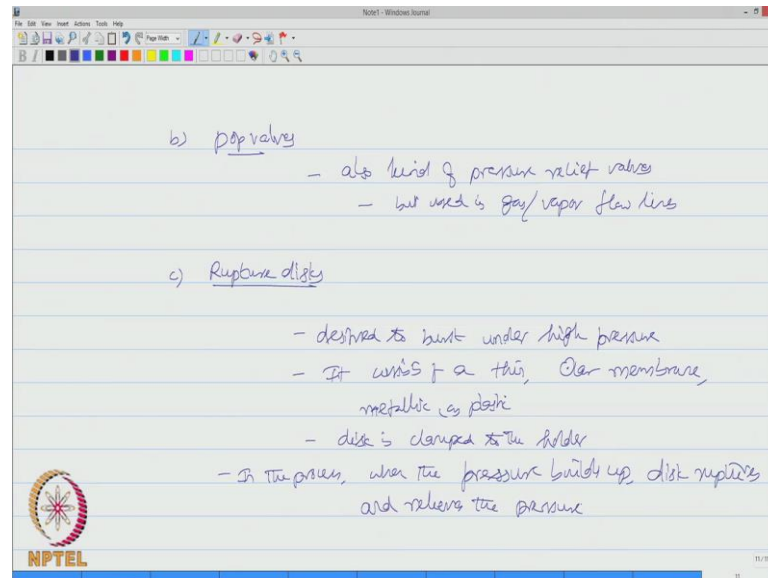 Note1 - Windows Journal
File Edit View Insert Actions Tools Help
Page Width
B I
b) pop valves
- also kind of pressure relief valves
- but used is gas/vapor flow lines
c) Rupture disks
- desired to burst under high pressure
- It consists of a thin, membrane,
metallic, as
- disk is clamped to the holder
- In the process, when the pressure builds up, disk ruptures
and relieves the pressure
NPTEL